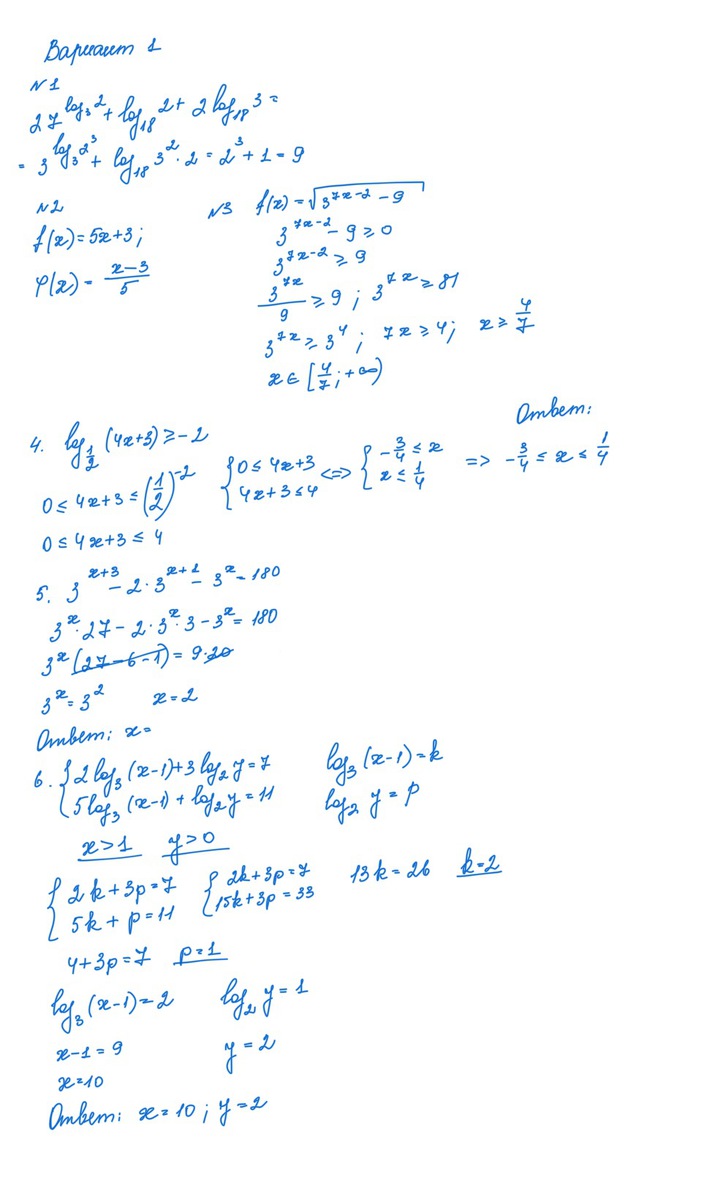 Вариант 1
N1
27^{log_3 2} + log_{18} 2 + 2 log_{18} 3 =
= 3^{log_3 2^3} + log_{18} 3^2 · 2 = 2^3 + 1 = 9
N2
f(x) = 5x+3;
φ(x) = \frac{x-3}{5}
N3 f(x) = \sqrt{3^{7x-2} - 9}
3^{7x-2} - 9 ≥ 0
3^{7x-2} ≥ 9
\frac{3^{7x}}{9} ≥ 9; 3^{7x} ≥ 81
3^{7x} ≥ 3^4; 7x ≥ 4; x ≥ \frac{4}{7}
x ∈ [\frac{4}{7}; +∞)
4. log_{\frac{1}{2}} (4x+3) ≥ -2
Ответ:
0 ≤ 4x+3 ≤ (\frac{1}{2})^{-2} { 0 ≤ 4x+3 4x+3 ≤ 4 <=> { -\frac{3}{4} ≤ x x ≤ \frac{1}{4} => -\frac{3}{4} ≤ x ≤ \frac{1}{4}
0 ≤ 4x+3 ≤ 4
5. 3^{x+3} - 2 · 3^{x+1} - 3^x = 180
3^x · 27 - 2 · 3^x · 3 - 3^x = 180
3^x (27-6-1) = 9·20
3^x = 3^2 x = 2
Ответ: x =
6. { 2 log_3 (x-1) + 3 log_2 y = 7 log_3 (x-1) = k
5 log_3 (x-1) + log_2 y = 11 log_2 y = p
x > 1 y > 0
{ 2k + 3p = 7 { 2k + 3p = 7 13k = 26 k = 2
5k + p = 11 15k + 3p = 33
4 + 3p = 7 p = 1
log_3 (x-1) = 2 log_2 y = 1
x - 1 = 9 y = 2
x = 10
Ответ: x = 10; y = 2